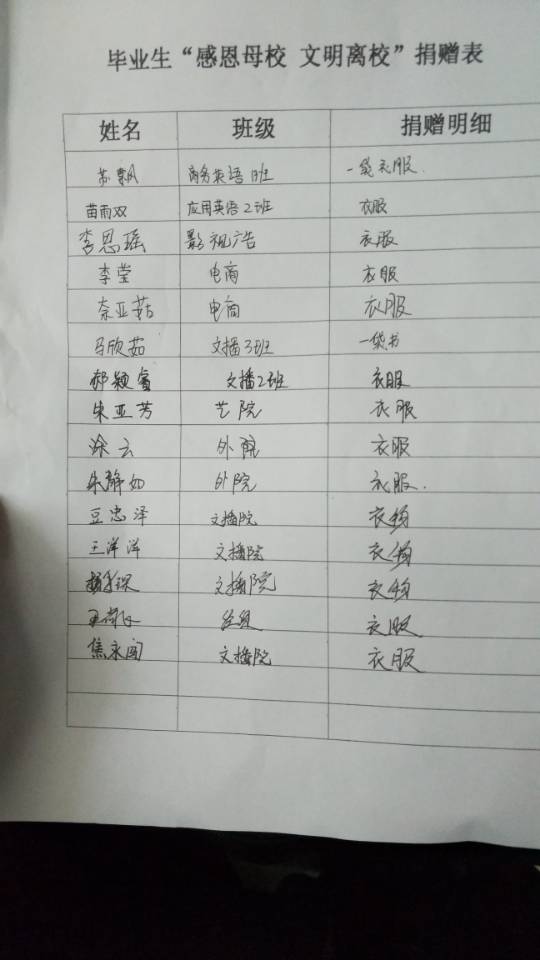 毕业生“感恩母校 文明离校”捐赠表
姓名 班级 捐赠明细
苏飘 商务英语1班 一袋衣服.
苗雨双 应用英语2班 衣服
李思瑶 影视广告 衣服
李莹 电商 衣服
奈亚茹 电商 衣服
马欣茹 文播3班 一袋书
郝颖睿 文播2班 衣服
朱亚芳 艺院 衣服
涂云 外院 衣服
朱静如 外院 衣服.
豆忠泽 文播院 衣物
王洋洋 文播院 衣物
文播院 衣物
经贸 衣服
焦永闯 文播院 衣服